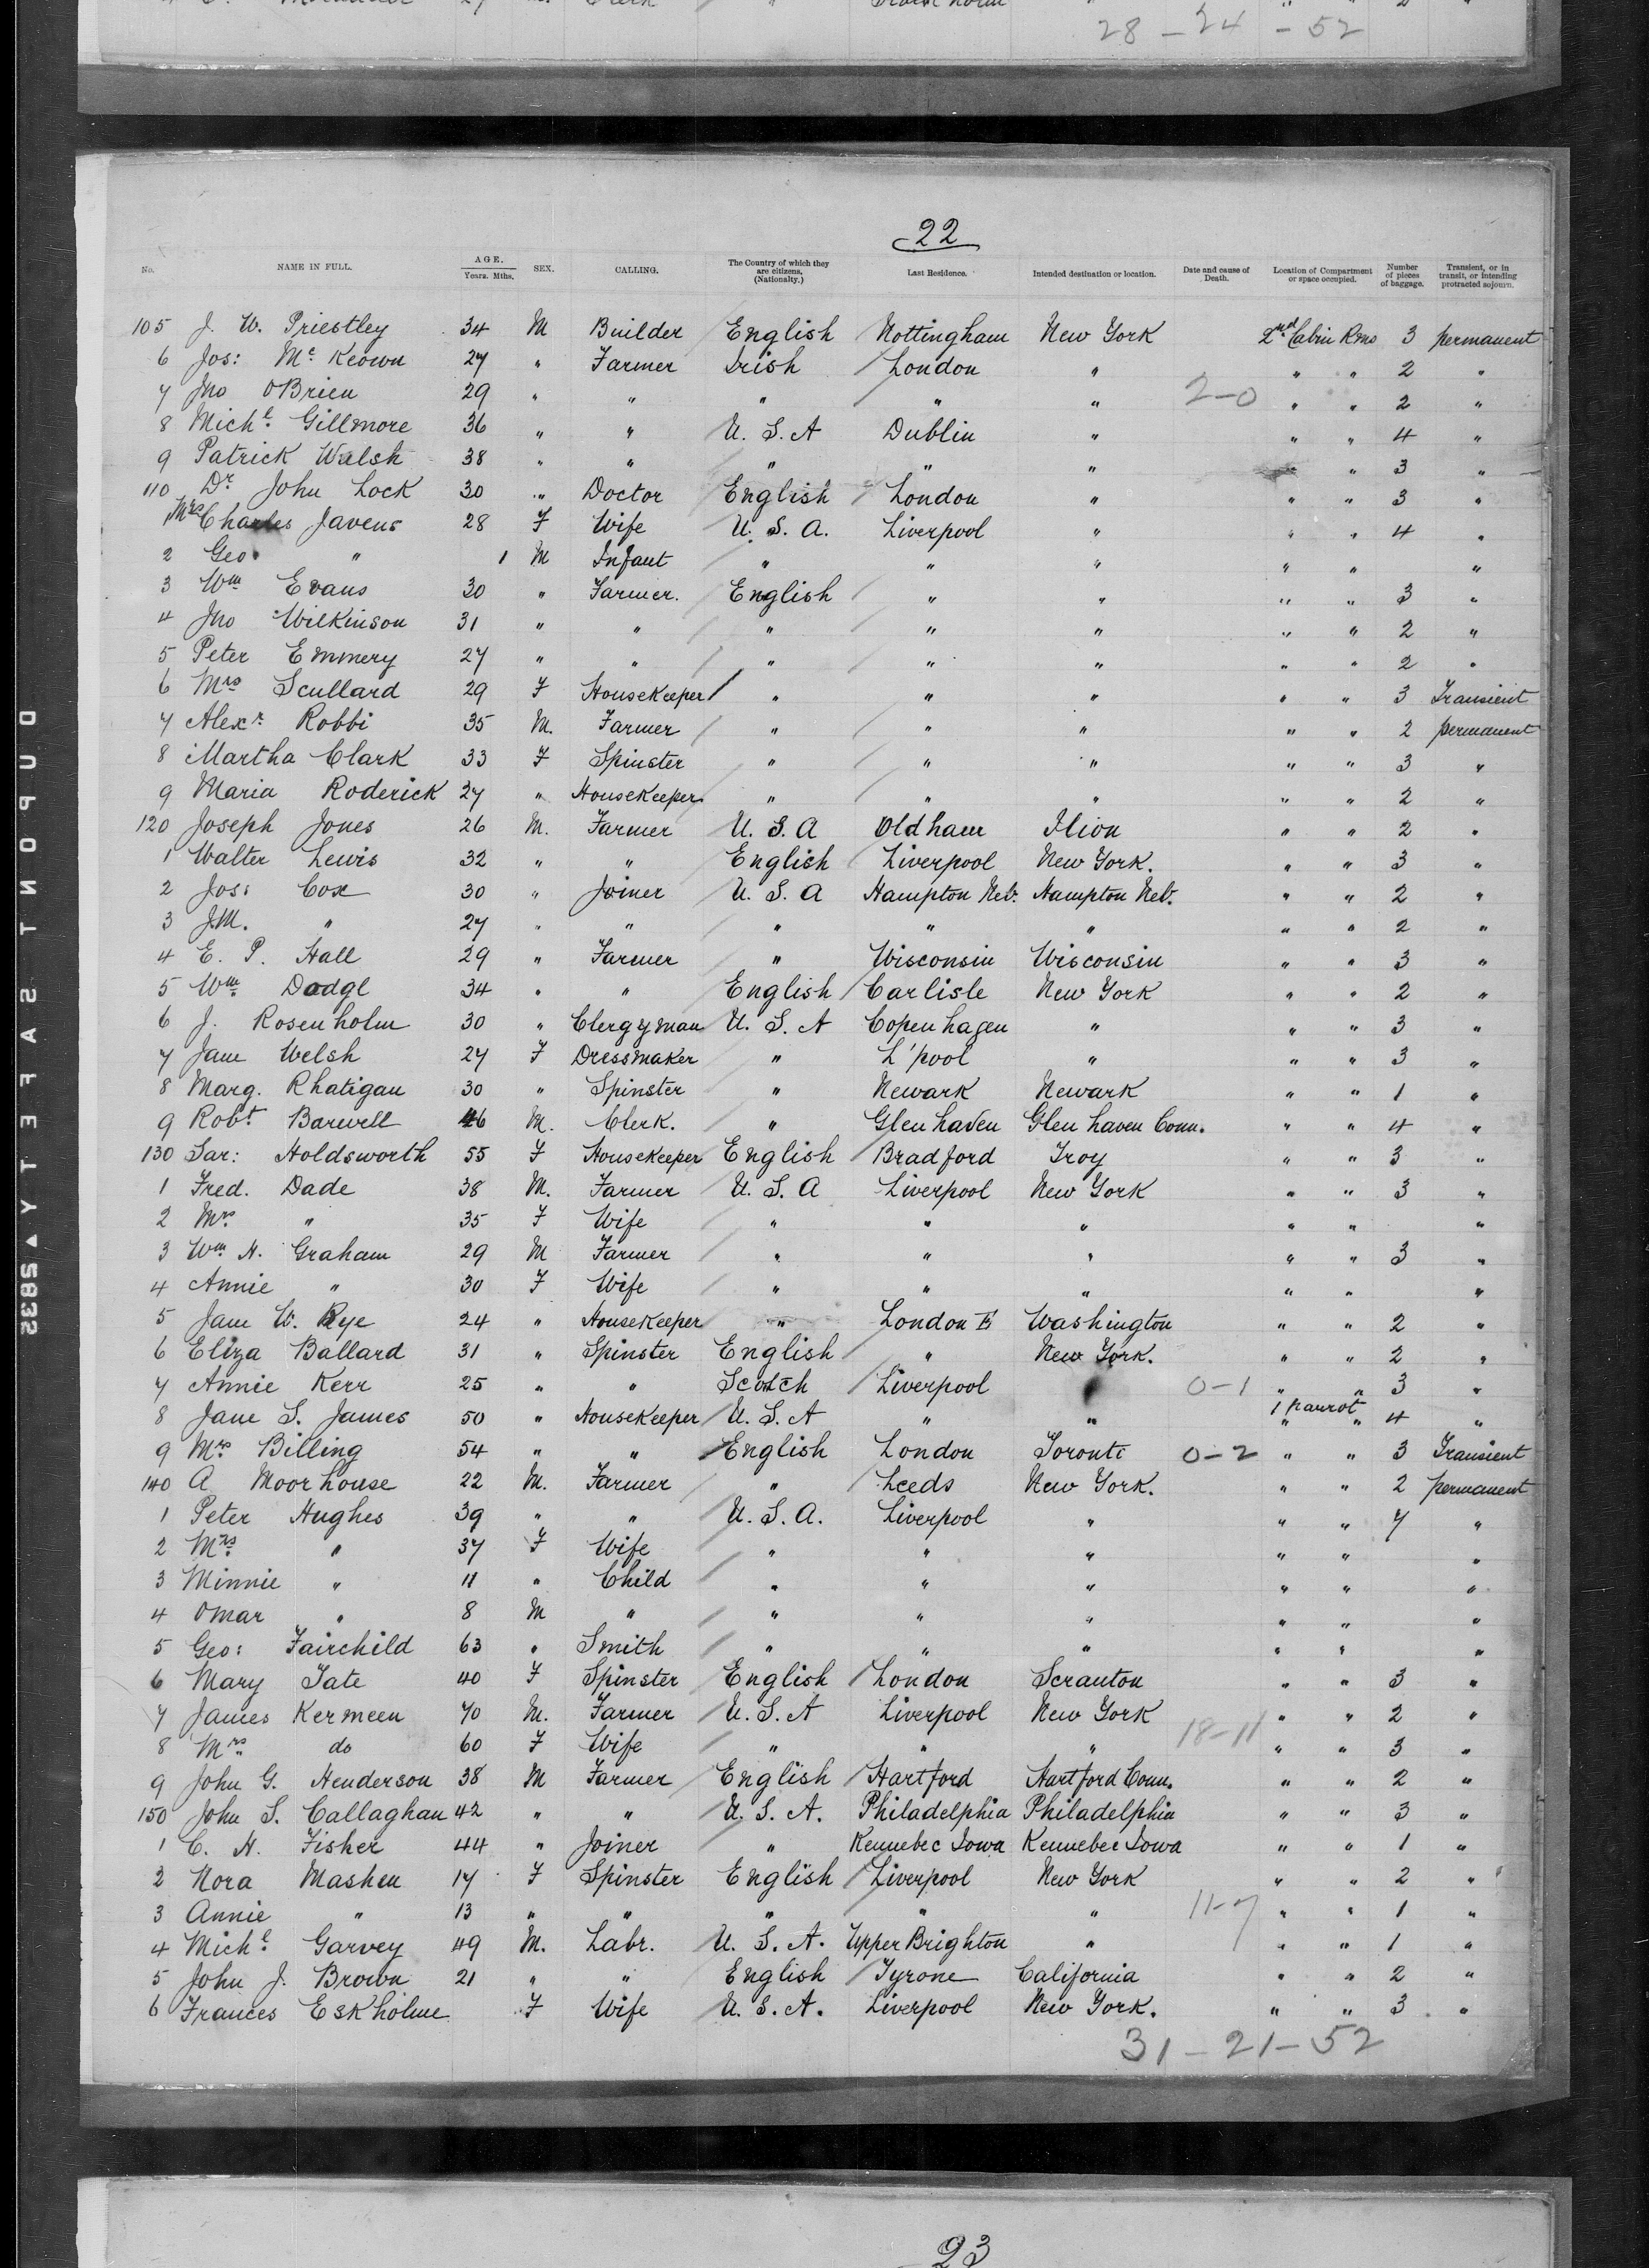 28 - 24 - 52
22
No. NAME IN FULL. AGE. Years. Mths. SEX. CALLING. The Country of which they are citizens, (Nationality.) Last Residence. Intended destination or location. Date and cause of Death. Location of Compartment or space occupied. Number of pieces of baggage. Transient, or in transit, or intending protracted sojourn.
105 J. W. Priestley 34 M Builder English Nottingham New York 2nd Cabin Rms 3 permanent
6 Jos: Mc Keown 27 " Farmer Irish London " " " 2 "
7 Jno OBrien 29 " " " " " 2-0 " " 2 "
8 Michl. Gillmore 36 " " U. S. A Dublin " " " 4 "
9 Patrick Walsh 38 " " " " " " 3 "
110 Dr. John Lock 30 " Doctor English London " " " 3 "
1 Mrs Charles Javens 28 F Wife U. S. A. Liverpool " " " 4 "
2 Geo. " 1 M Infant " " " " " "
3 Wm Evans 30 " Farmer. English " " " " 3 "
4 Jno Wilkinson 31 " " " " " " " 2 "
5 Peter Emmery 27 " " " " " " " 2 "
6 Mrs Scullard 29 F Housekeeper " " " " " 3 Transient
7 Alexr. Robbi 35 M. Farmer " " " " " 2 permanent
8 Martha Clark 33 F Spinster " " " " " 3 "
9 Maria Roderick 27 " Housekeeper " " " " " 2 "
120 Joseph Jones 26 M. Farmer U. S. A Oldham Ilion " " 2 "
1 Walter Lewis 32 " " English Liverpool New York. " " 3 "
2 Jos: Cox 30 " Joiner U. S. A Hampton Neb. Hampton Neb. " " 2 "
3 J.M. " 27 " " " " " " " 2 "
4 E. P. Hall 29 " Farmer " Wisconsin Wisconsin " " 3 "
5 Wm. Dodge 34 " " English Carlisle New York " " 2 "
6 J. Rosenholm 30 " Clergyman U. S. A Copenhagen " " " 3 "
7 Jane Welsh 27 F Dressmaker " L'pool " " " 3 "
8 Marg. Rhatigan 30 " Spinster " Newark Newark " " 1 "
9 Robt Barwell 46 M. Clerk. " Glenhaven Glenhaven Conn. " " 4 "
130 Sar: Holdsworth 55 F Housekeeper English Bradford Troy " " 3 "
1 Fred. Dade 38 M. Farmer U. S. A Liverpool New York " " 3 "
2 Mrs " 35 F Wife " " " " " "
3 Wm H. Graham 29 M Farmer " " " " " 3 "
4 Annie " 30 F Wife " " " " " "
5 Jane W. Rye 24 " Housekeeper " London E Washington " " 2 "
6 Eliza Ballard 31 " Spinster English " New York. " " 2 "
7 Annie Kerr 25 " " Scotch Liverpool 0-1 " " 3 "
8 Jane S. James 50 " Housekeeper U. S. A " " 1 parrot " " 4 "
9 Mrs. Billing 54 " " English London Toronto 0-2 " " 3 Transient
140 A Moorhouse 22 M. Farmer " Leeds New York. " " 2 permanent
1 Peter Hughes 39 " " U. S. A. Liverpool " " " 7 "
2 Mrs. " 37 F Wife " " " " " "
3 Minnie " 11 " Child " " " " " "
4 Omar " 8 M " " " " " " "
5 Geo: Fairchild 63 " Smith " " " " " "
6 Mary Tate 40 F Spinster English London Scranton " " 3 "
7 James Kermeen 70 M. Farmer U. S. A Liverpool New York 18-11 " " 2 "
8 Mrs do 60 F Wife " " " " " 3 "
9 John G. Henderson 38 M Farmer English Hartford Hartford Conn. " " 2 "
150 John S. Callaghan 42 " " U. S. A. Philadelphia Philadelphia " " 3 "
1 C. H. Fisher 44 " Joiner " Kennebec Iowa Kennebec Iowa " " 1 "
2 Nora Mashen 17 F Spinster English Liverpool New York " " 2 "
3 Annie " 13 " " " " " 11-7 " " 1 "
4 Michl. Garvey 49 M. Labr. U. S. A. Upper Brighton " " " 1 "
5 John J. Brown 21 " " English Tyrone California " " 2 "
6 Frances Eskholme F Wife U. S. A. Liverpool New York. " " 3 "
31 - 21 - 52
23
DUPONT SAFETY 5832